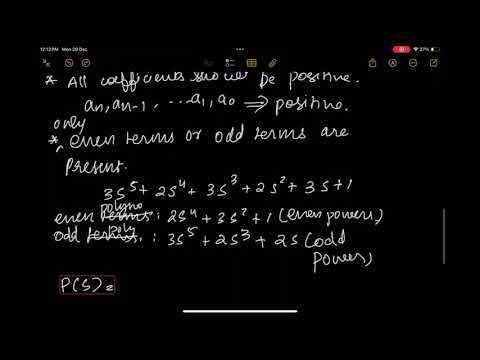 12:12PM Mon 26 Dec
27%
* All coefficients should be positive.
an, an-1, ....a1, a0 ⟹ positive.
only
* ^ even terms or odd terms are
Present.
3s⁵+ 2s⁴+ 3s³+2s²+ 3s+1
polyno
even terms : 2s⁴+3s²+1 (even powers)
poly
odd terms. : 3s⁵+2s³+2s (odd
powers)
P(s) =